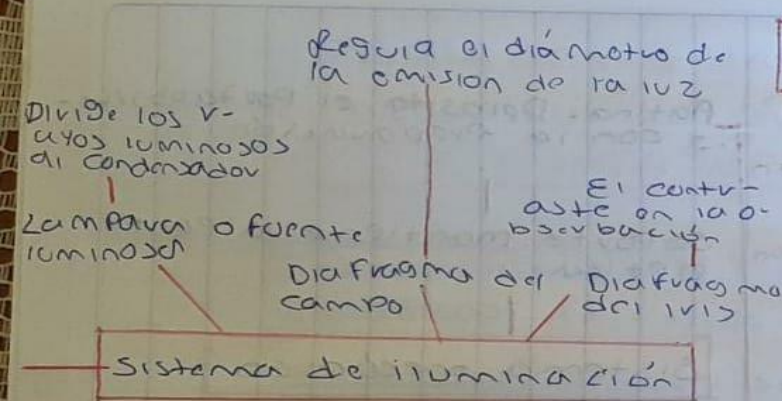 Regula el diámetro de
la emision de la luz
Dirige los r-
ayos luminosos
al condensador
Lampara o fuente
luminosa
El contr-
aste en la o-
bserbación
Diafragma del
campo
Diafragma
del iris
Sistema de iluminación